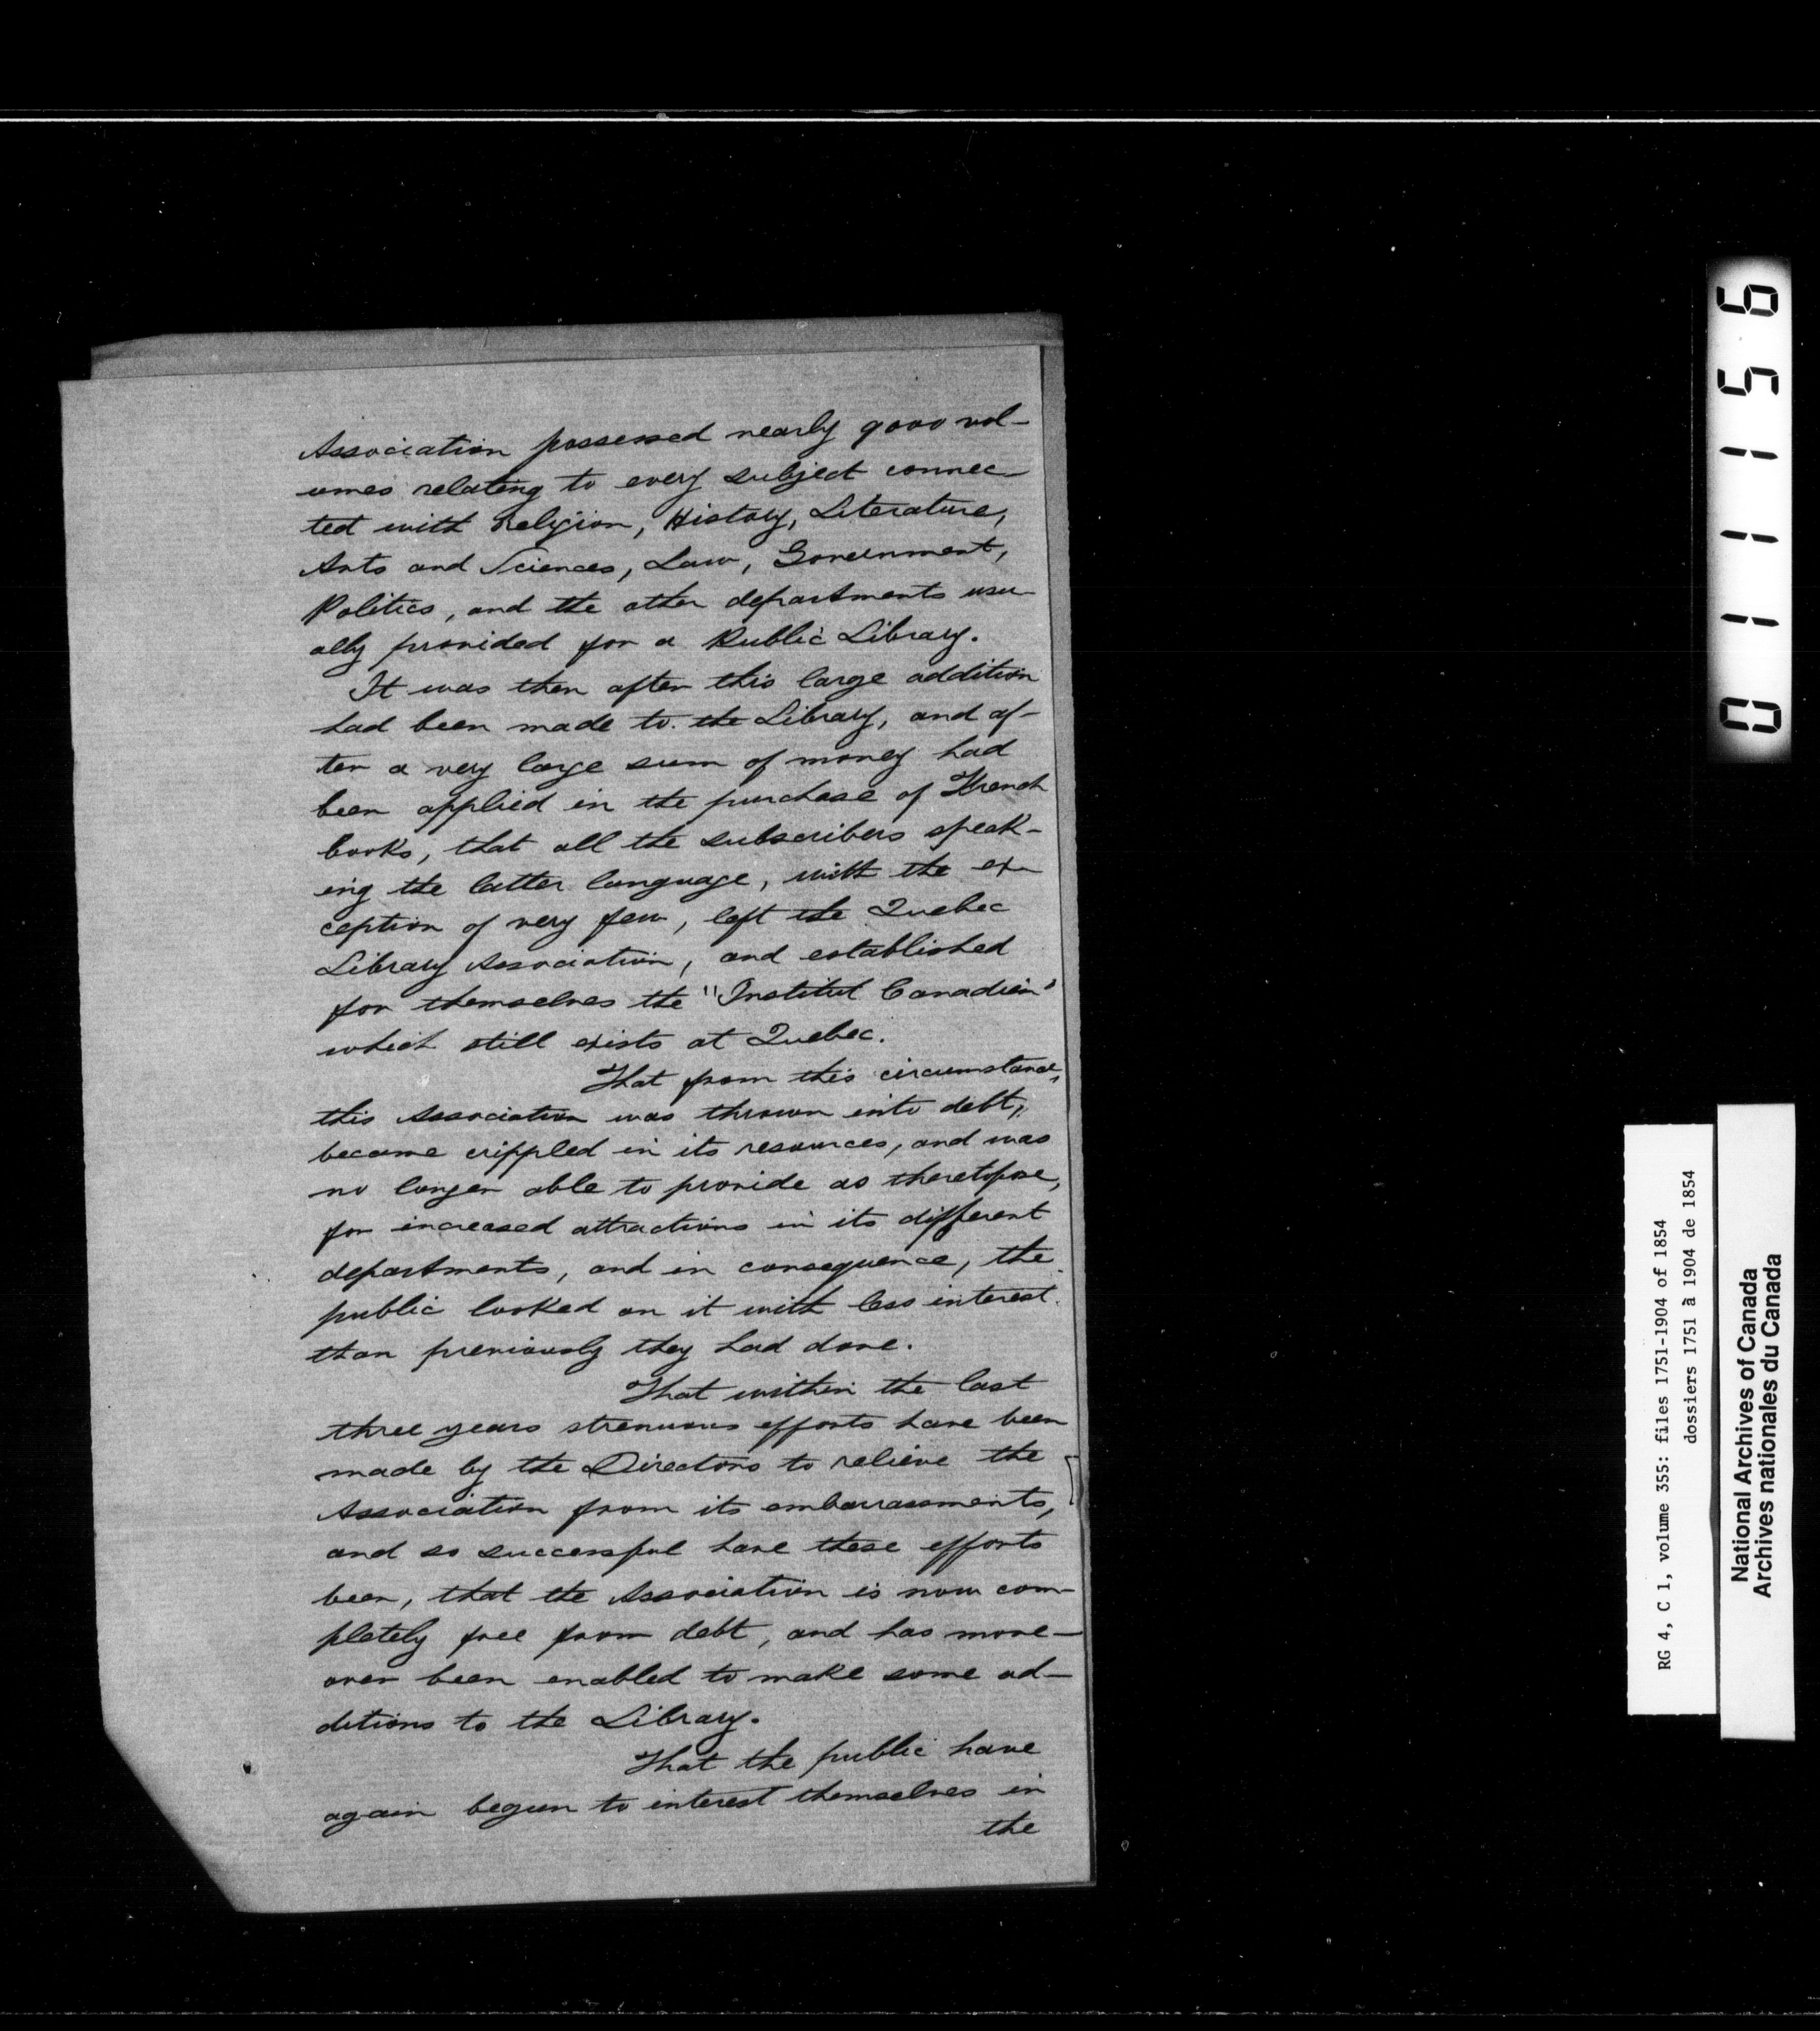 Association possessed nearly 9000 vol-
umes relating to every subject connec-
ted with Religion, History, Literature,
Arts and Sciences, Law, Government,
Politics, and the other departments usu-
ally provided for a Public Library.
It was then after this large addition
had been made to the Library, and af-
ter a very large sum of money had
been applied in the purchase of French
books, that all the subscribers speak-
ing the latter language, with the ex-
ception of very few, left the Quebec
Library Association, and established
for themselves the "Institut Canadien"
which still exists at Quebec.
That from this circumstance,
this Association was thrown into debt,
became crippled in its resources, and was
no longer able to provide as theretofore,
for increased attractions in its different
departments, and in consequence, the
public looked on it with less interest
than previously they had done.
That within the last
three years strenuous efforts have been
made by the Directors to relieve the
Association from its embarrassments,
and so successful have these efforts
been, that the Association is now com-
pletely free from debt, and has more-
over been enabled to make some ad-
ditions to the Library.
That the public have
again begun to interest themselves in
the
011156
RG 4, C 1, volume 355: files 1751-1904 of 1854
dossiers 1751 à 1904 de 1854
National Archives of Canada
Archives nationales du Canada